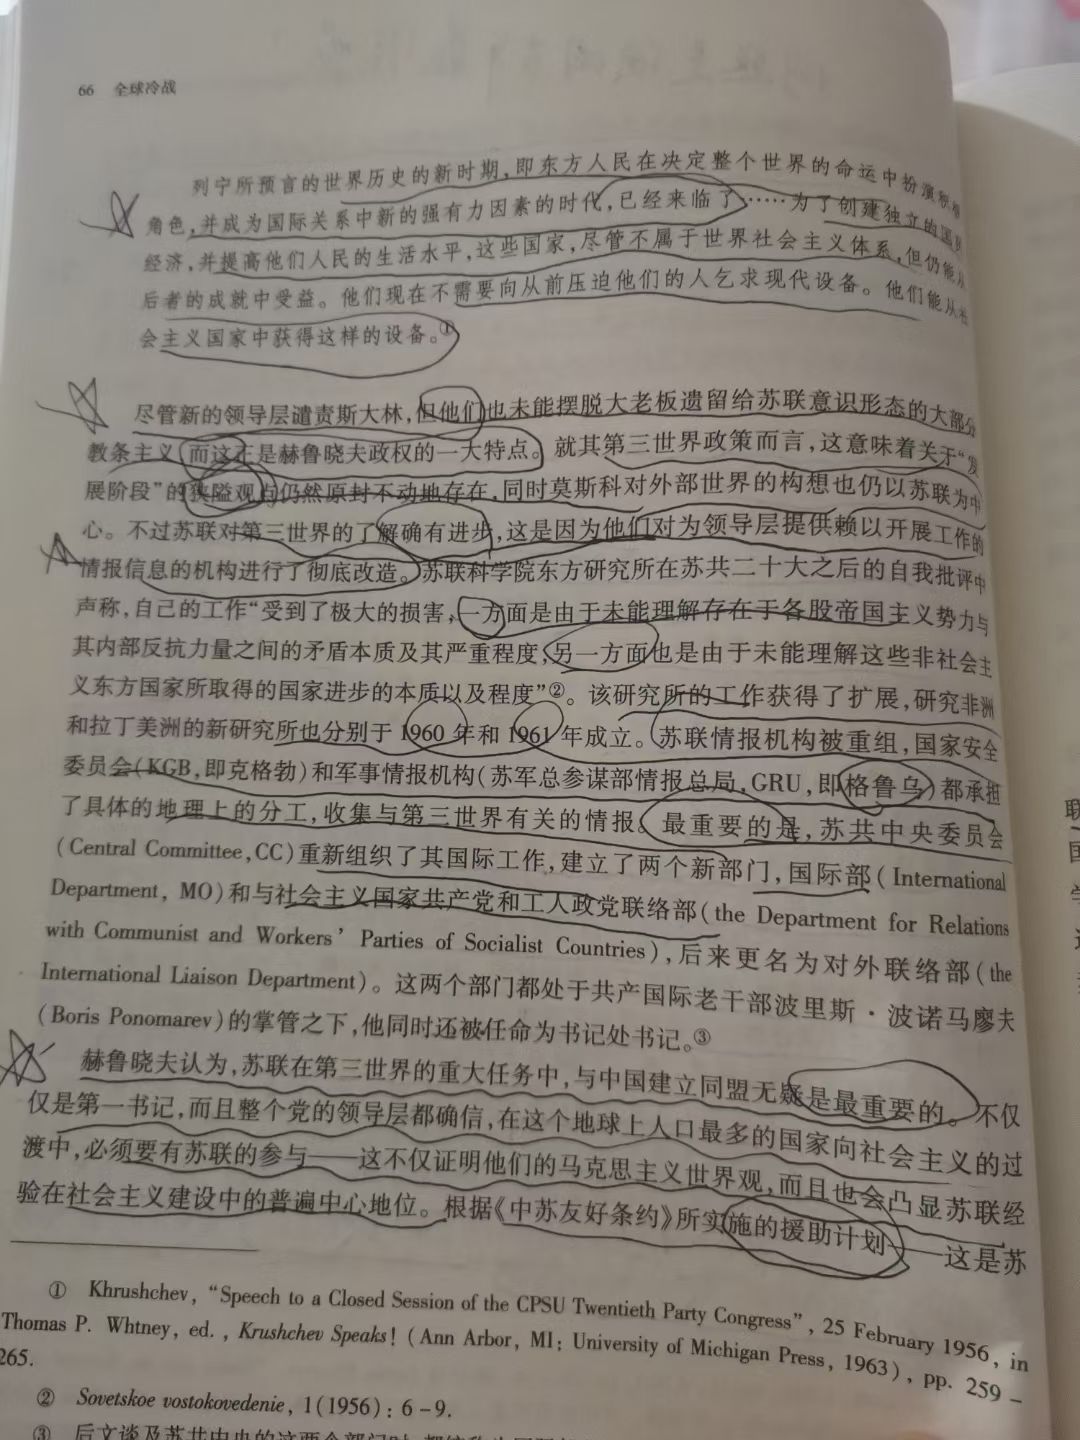 66 全球冷战
列宁所预言的世界历史的新时期,即东方人民在决定整个世界的命运中扮演积极
角色,并成为国际关系中新的强有力因素的时代,已经来临了……为了创建独立的国民
经济,并提高他们人民的生活水平,这些国家,尽管不属于世界社会主义体系,但仍能从
后者的成就中受益。他们现在不需要向从前压迫他们的人乞求现代设备。他们能从社
会主义国家中获得这样的设备。①
尽管新的领导层谴责斯大林,但他们也未能摆脱大老板遗留给苏联意识形态的大部分
教条主义,而这正是赫鲁晓夫政权的一大特点。就其第三世界政策而言,这意味着关于“发
展阶段”的狭隘观点仍然原封不动地存在,同时莫斯科对外部世界的构想也仍以苏联为中
心。不过苏联对第三世界的了解确有进步,这是因为他们对为领导层提供赖以开展工作的
情报信息的机构进行了彻底改造。苏联科学院东方研究所在苏共二十大之后的自我批评中
声称,自己的工作“受到了极大的损害,一方面是由于未能理解存在于各股帝国主义势力与
其内部反抗力量之间的矛盾本质及其严重程度,另一方面也是由于未能理解这些非社会主
义东方国家所取得的国家进步的本质以及程度”②。该研究所的工作获得了扩展,研究非洲
和拉丁美洲的新研究所也分别于 1960 年和 1961 年成立。苏联情报机构被重组,国家安全
委员会(KGB,即克格勃)和军事情报机构(苏军总参谋部情报总局,GRU,即格鲁乌)都承担
了具体的地理上的分工,收集与第三世界有关的情报。最重要的是,苏共中央委员会
(Central Committee,CC)重新组织了其国际工作,建立了两个新部门,国际部(International
Department, MO)和与社会主义国家共产党和工人政党联络部(the Department for Relations
with Communist and Workers’ Parties of Socialist Countries),后来更名为对外联络部(the
International Liaison Department)。这两个部门都处于共产国际老干部波里斯·波诺马廖夫
(Boris Ponomarev)的掌管之下,他同时还被任命为书记处书记。③
赫鲁晓夫认为,苏联在第三世界的重大任务中,与中国建立同盟无疑是最重要的。不仅
仅是第一书记,而且整个党的领导层都确信,在这个地球上人口最多的国家向社会主义的过
渡中,必须要有苏联的参与——这不仅证明他们的马克思主义世界观,而且也会凸显苏联经
验在社会主义建设中的普遍中心地位。根据《中苏友好条约》所实施的援助计划——这是苏
① Khrushchev, “Speech to a Closed Session of the CPSU Twentieth Party Congress”, 25 February 1956, in
Thomas P. Whtney, ed. , Krushchev Speaks! (Ann Arbor, MI: University of Michigan Press, 1963), pp. 259 –
265.
② Sovetskoe vostokovedenie, 1(1956): 6 – 9.
③ 后文谈及苏共中央的这两个部门时,